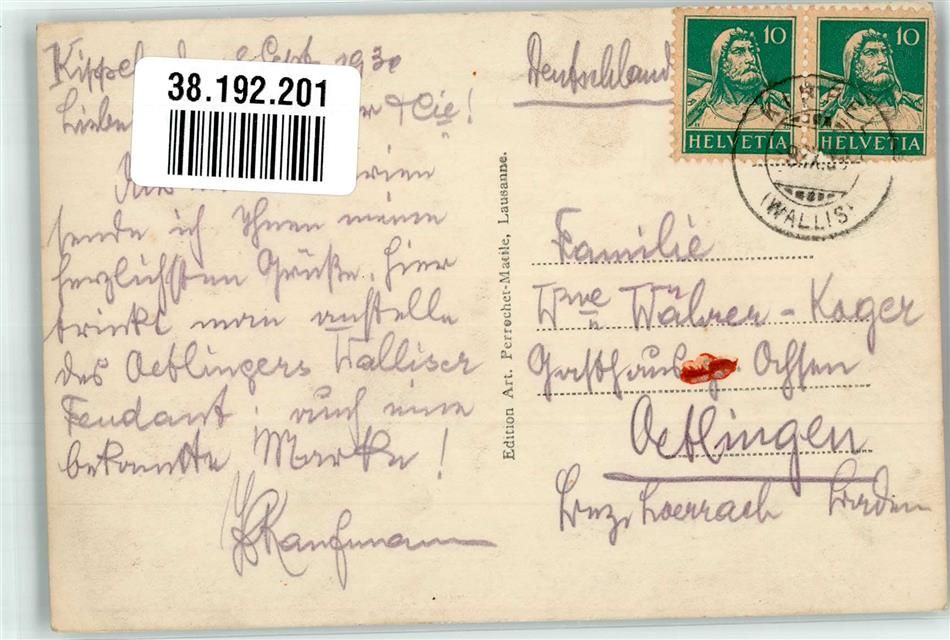 Kippel, den 8 Sept. 1930
Liebe & Cie!
38.192.201
Aus
sende ich Ihnen meine
herzlichsten Grüße. Hier
trinkt man anstelle
des Oetlingers Walliser
Fendant. auch eine
bekannte Marke!
Kaufmann
Edition Art. Perrochet-Matile, Lausanne.
Deutschland
10 10
HELVETIA HELVETIA
(WALLIS)
Familie
Wwe Währer-Kager
Gasthaus z. Ochsen
Oetlingen
Bez. Loerrach Baden